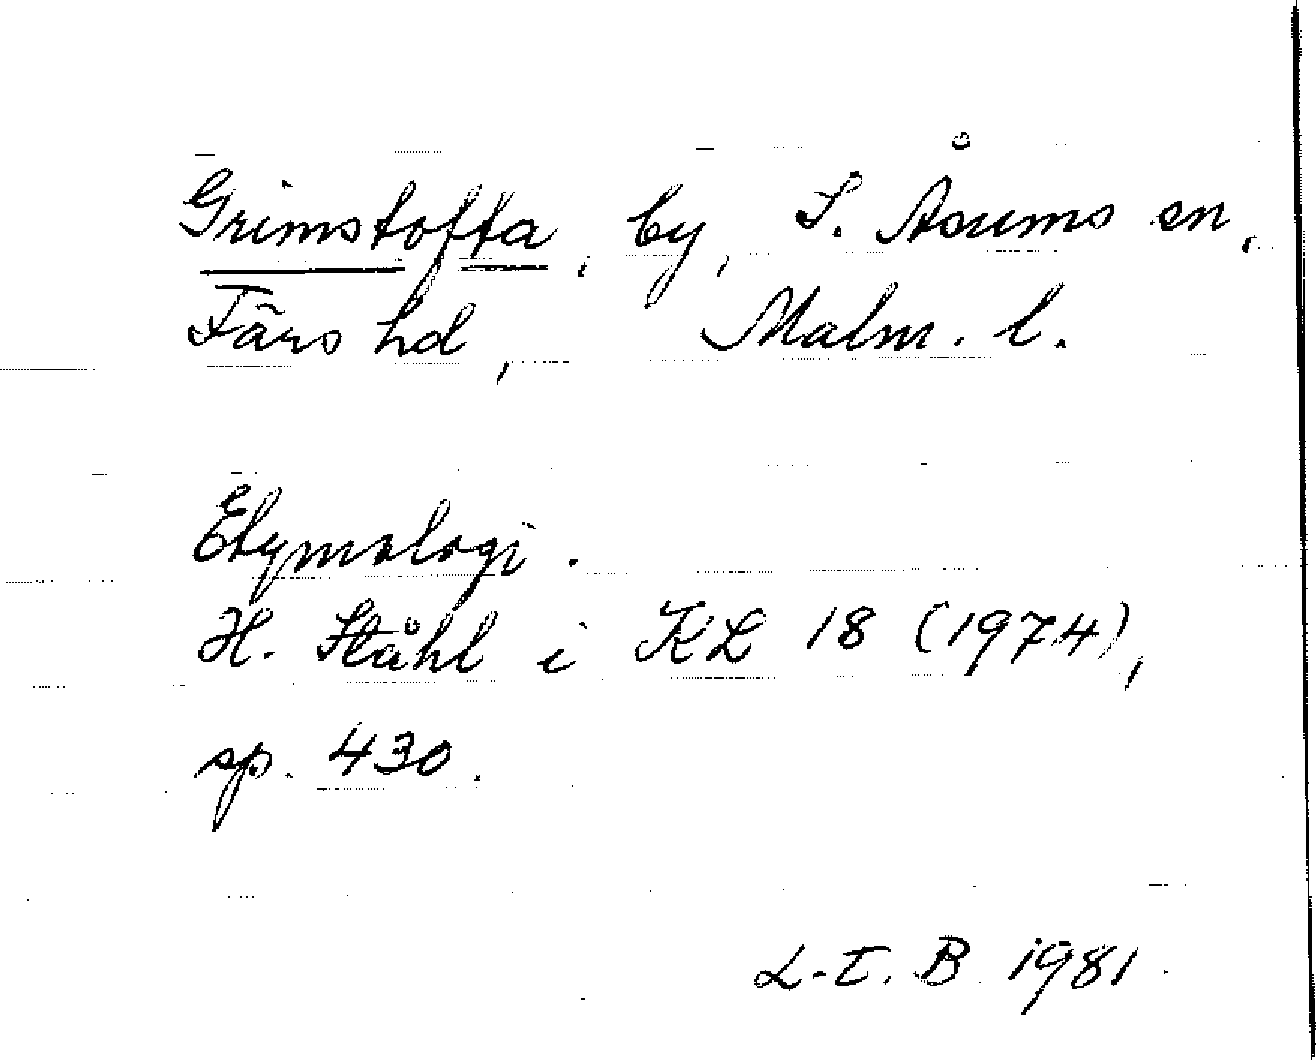 Grimstofta, by, S. Åsums sn,
Färs hd, Malm. l.
Etymologi.
H. Ståhl i KL 18 (1974),
sp. 430.
L-E. B. 1981.